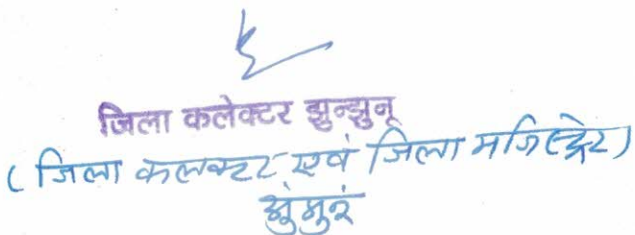 जिला कलेक्टर झुन्झुनू
( जिला कलक्टर एवं जिला मजिस्ट्रेट)